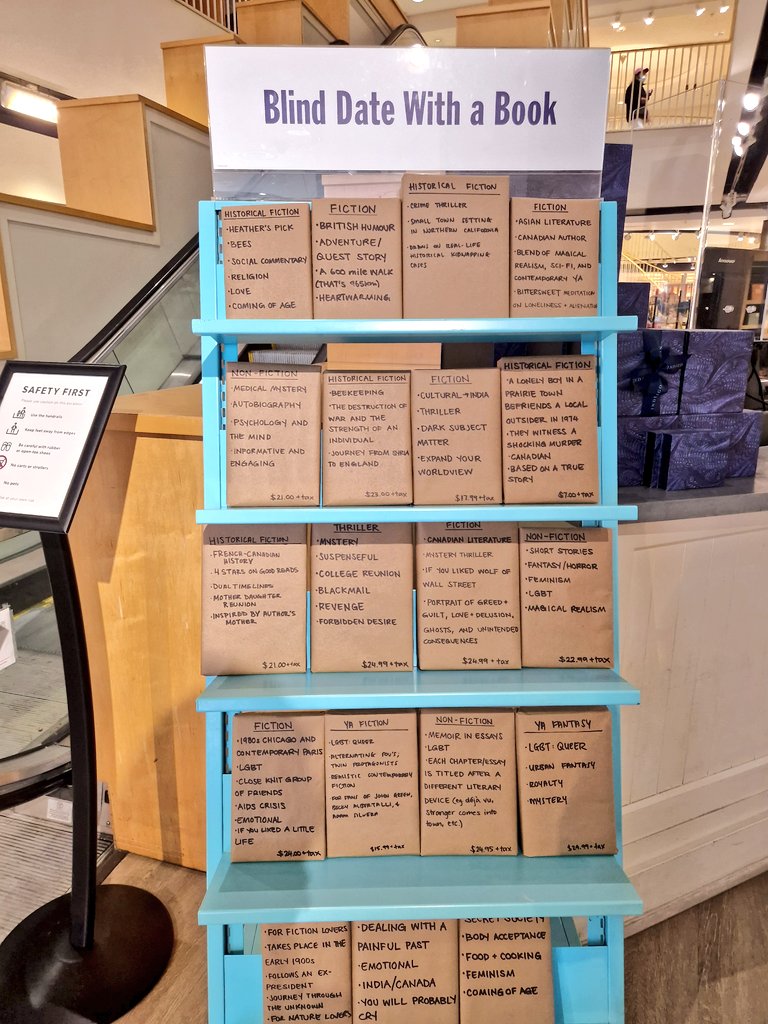 Blind Date With a Book
HISTORICAL FICTION
• HEATHER'S PICK
• BEES
• SOCIAL COMMENTARY
• RELIGION
• LOVE
• COMING OF AGE
FICTION
• BRITISH HUMOUR
• ADVENTURE/
QUEST STORY
• A 600 MILE WALK
(THAT'S 965KM)
• HEARTWARMING
HISTORICAL FICTION
• CRIME THRILLER
• SMALL TOWN SETTING
IN NORTHERN CALIFORNIA
• DRAWS ON REAL-LIFE
HISTORICAL KIDNAPPING
CASES
FICTION
• ASIAN LITERATURE
• CANADIAN AUTHOR
• BLEND OF MAGICAL
REALISM, SCI-FI, AND
CONTEMPORARY YA
• BITTERSWEET MEDITATION
ON LONELINESS + ALIENATION
NON-FICTION
• MEDICAL MYSTERY
• AUTOBIOGRAPHY
• PSYCHOLOGY AND
THE MIND
• INFORMATIVE AND
ENGAGING
$21.00 + tax
HISTORICAL FICTION
• BEEKEEPING
• THE DESTRUCTION OF
WAR AND THE
STRENGTH OF AN
INDIVIDUAL
• JOURNEY FROM SYRIA
TO ENGLAND
$23.00 + tax
FICTION
• CULTURAL → INDIA
• THRILLER
• DARK SUBJECT
MATTER
• EXPAND YOUR
WORLDVIEW
$17.99 + tax
HISTORICAL FICTION
• A LONELY BOY IN A
PRAIRIE TOWN
BEFRIENDS A LOCAL
OUTSIDER IN 1974
• THEY WITNESS A
SHOCKING MURDER
• CANADIAN
• BASED ON A TRUE
STORY
$7.00 + tax
HISTORICAL FICTION
• FRENCH-CANADIAN
HISTORY
• 4 STARS ON GOOD READS
• DUAL TIMELINES
• MOTHER DAUGHTER
REUNION
• INSPIRED BY AUTHOR'S
MOTHER
$21.00 + tax
THRILLER
• MYSTERY
• SUSPENSEFUL
• COLLEGE REUNION
• BLACKMAIL
• REVENGE
• FORBIDDEN DESIRE
$24.99 + tax
FICTION
• CANADIAN LITERATURE
• MYSTERY THRILLER
• IF YOU LIKED WOLF OF
WALL STREET
• PORTRAIT OF GREED +
GUILT, LOVE + DELUSION,
GHOSTS, AND UNINTENDED
CONSEQUENCES
$24.99 + tax
NON-FICTION
• SHORT STORIES
• FANTASY/HORROR
• FEMINISM
• LGBT
• MAGICAL REALISM
$22.99 + tax
FICTION
• 1980s CHICAGO AND
CONTEMPORARY PARIS
• LGBT
• CLOSE KNIT GROUP
OF FRIENDS
• AIDS CRISIS
• EMOTIONAL
• IF YOU LIKED A LITTLE
LIFE
$24.00 + tax
YA FICTION
• LGBT: QUEER
• ALTERNATING POV'S,
TWIN PROTAGONISTS
• REALISTIC CONTEMPORARY
FICTION
• FOR FANS OF JOHN GREEN,
BECKY ALBERTALLI, &
ADAM SILVERA
$15.99 + tax
NON-FICTION
• MEMOIR IN ESSAYS
• LGBT
• EACH CHAPTER/ESSAY
IS TITLED AFTER A
DIFFERENT LITERARY
DEVICE (eg. déjà vu,
stranger comes into
town, etc.)
$24.95 + tax
YA FANTASY
• LGBT: QUEER
• URBAN FANTASY
• ROYALTY
• MYSTERY
$24.99 + tax
• FOR FICTION LOVERS
• TAKES PLACE IN THE
EARLY 1900s
• FOLLOWS AN EX-
PRESIDENT
• JOURNEY THROUGH
THE UNKNOWN
• FOR NATURE LOVERS
• DEALING WITH A
PAINFUL PAST
• EMOTIONAL
• INDIA/CANADA
• YOU WILL PROBABLY
CRY
SECRET SOCIETY
• BODY ACCEPTANCE
• FOOD + COOKING
• FEMINISM
• COMING OF AGE
SAFETY FIRST
Use the handrails
Keep feet away from edges
Be careful with rubber
or open-toe shoes
No carts or strollers
No pets
Lenovo